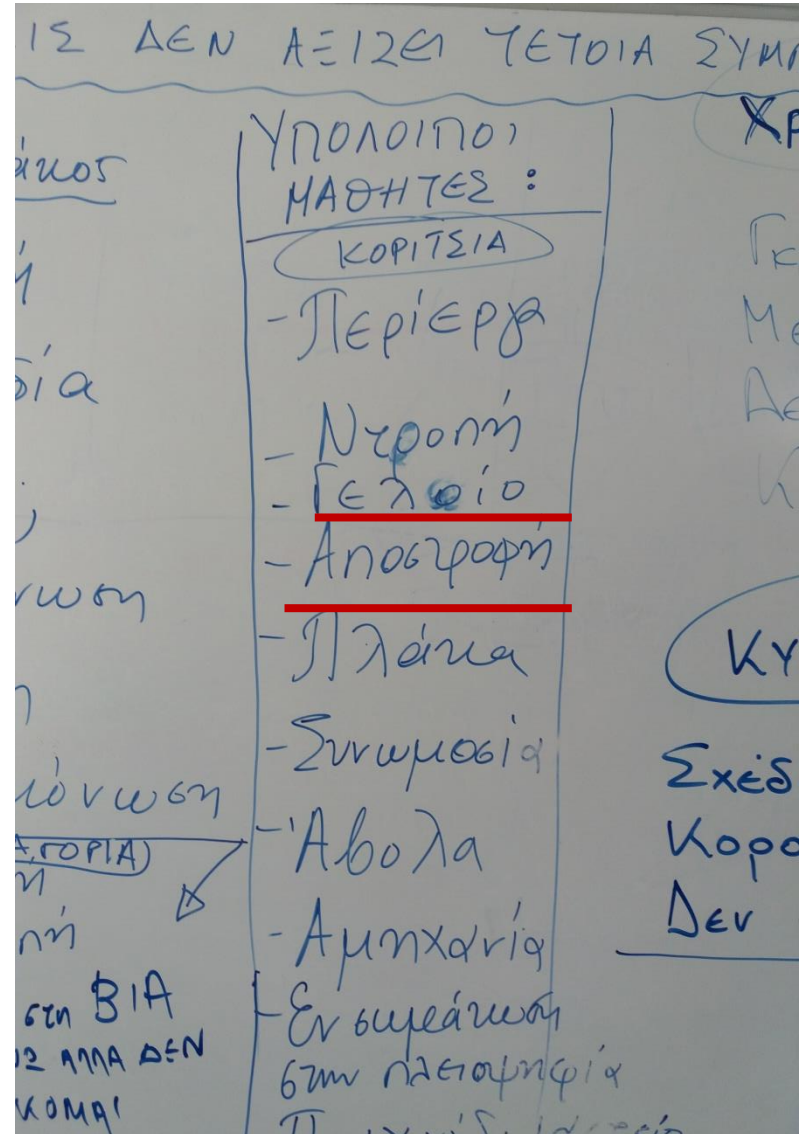 ΙΣ ΔΕΝ ΑΞΙΖΕΙ ΤΕΤΟΙΑ ΣΥΜΠ
άκος
ή
δία
νωση
η
ιόνωση
Α, ΓΟΡΙΑ)
η
πή
στη ΒΙΑ
ΑΛΛΑ ΔΕΝ
ΚΟΜΑΙ
ΥΠΟΛΟΙΠΟΙ
ΜΑΘΗΤΕΣ :
ΚΟΡΙΤΣΙΑ
- Περίεργα
- Ντροπή
- Γελοίο
- Αποστροφή
- Πλάκα
- Συνωμοσία
- Άβολα
- Αμηχανία
- Ενσωμάτωση
στην πλειοψηφία
Χρ
Γκ
Με
Δε
Κ
ΚΥ
Σχέδ
Κορο
Δεν